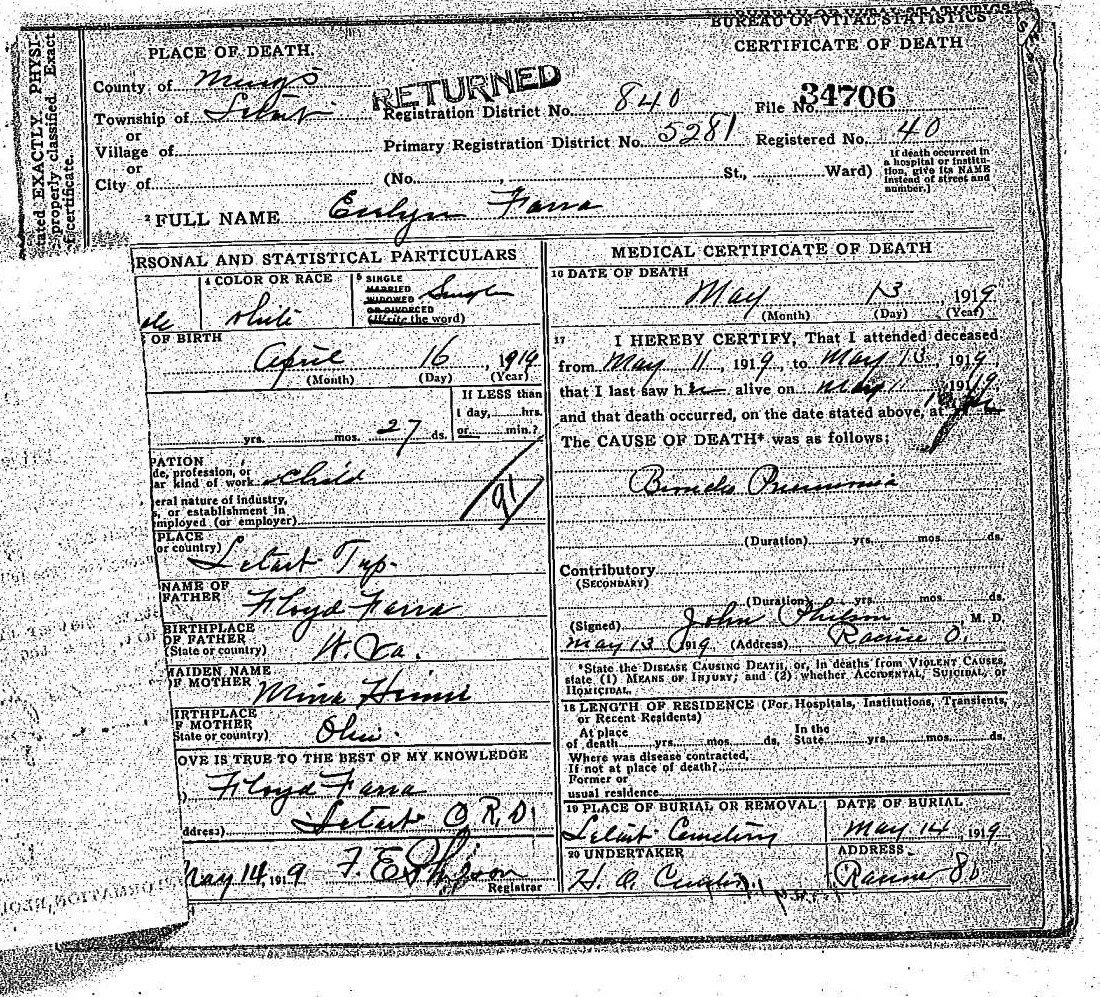 BUREAU OF VITAL STATISTICS
CERTIFICATE OF DEATH
PLACE OF DEATH.
County of Meigs
Township of Letart
or
Village of
or
City of
RETURNED
Registration District No. 840
File No. 34706
Primary Registration District No. 5281
Registered No. 40
(No. , St., Ward)
If death occurred in
a hospital or institu-
tion, give its NAME
instead of street and
number.)
ated EXACTLY. PHYSI-
properly classified. Exact
certificate.
2 FULL NAME Evelyn Farra
RSONAL AND STATISTICAL PARTICULARS
4 COLOR OR RACE
White
5 SINGLE
MARRIED
WIDOWED
OR DIVORCED
(Write the word)
Single
ale
OF BIRTH
April 16, 1919
(Month) (Day) (Year)
yrs. mos. 27 ds.
If LESS than
1 day, hrs.
or min.?
PATION
de, profession, or
ar kind of work Child
eral nature of industry,
s, or establishment in
mployed (or employer)
91
PLACE
or country)
Letart Twp.
NAME OF
FATHER
Floyd Farra
BIRTHPLACE
OF FATHER
(State or country)
W. Va.
MAIDEN NAME
OF MOTHER
Mina
BIRTHPLACE
OF MOTHER
State or country)
Ohio.
OVE IS TRUE TO THE BEST OF MY KNOWLEDGE
Floyd Farra
ddress) Letart O. R.D.1
May 14, 1919 F. E.
Registrar
MEDICAL CERTIFICATE OF DEATH
16 DATE OF DEATH
May 13, 1919
(Month) (Day) (Year)
17 I HEREBY CERTIFY, That I attended deceased
from May 11, 1919, to May 13, 1919
that I last saw her alive on May 11, 1919
and that death occurred, on the date stated above, at
The CAUSE OF DEATH* was as follows:
Broncho Pneumonia
(Duration) yrs. mos. ds.
Contributory
(SECONDARY)
(Duration) yrs. mos. ds.
(Signed) John , M. D.
May 13 1919 (Address) Racine O.
*State the DISEASE CAUSING DEATH, or, in deaths from VIOLENT CAUSES,
state (1) MEANS OF INJURY; and (2) whether ACCIDENTAL, SUICIDAL, or
HOMICIDAL.
18 LENGTH OF RESIDENCE (For Hospitals, Institutions, Transients,
or Recent Residents)
At place
of death yrs. mos. ds.
In the
State yrs. mos. ds.
Where was disease contracted,
If not at place of death?
Former or
usual residence
19 PLACE OF BURIAL OR REMOVAL
Letart Cemetery
DATE OF BURIAL
May 14, 1919
20 UNDERTAKER
H. O.
ADDRESS
Racine